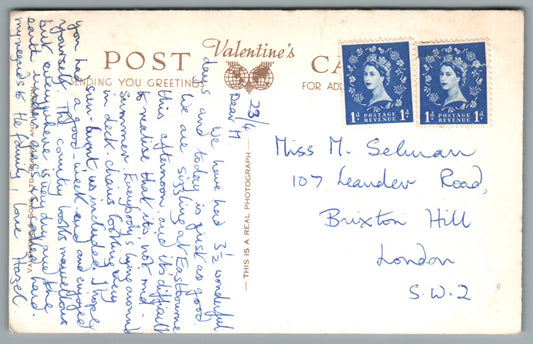 POST CARD
Valentine's
SENDING YOU GREETINGS
FOR ADD
THIS IS A REAL PHOTOGRAPH
23/4
Dear M.
We have had 3½ wonderful
days and today is just as good.
We are sizzling at Eastbourne
this afternoon and it's difficult
to realise that it's not mid-
summer. Everybody's lying around
in deck chairs looking very
sun-burnt, us included. I hope
you had a good week-end and enjoyed
yourself. The country looks marvellous
but everywhere is very dry and the
earth is
my regards to the family, love Hazel
1d POSTAGE REVENUE 1d
1d POSTAGE REVENUE 1d
Miss M. Selman
107 Leander Road,
Brixton Hill
London
S.W.2